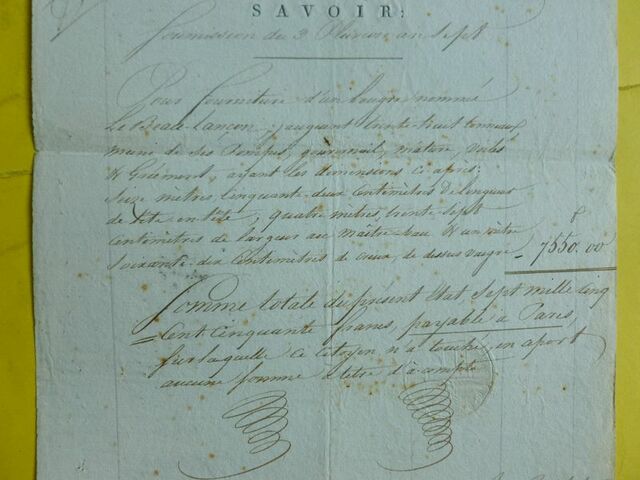 SAVOIR:
Soumission du 3 Pluviose an Sept
Pour fourniture d'un Lougre nommé
Le Beau-Lancon, jauguant trente-huit tonneaux
muni de ses Pompes, gouvernail, mature, voiles
& Gréement, ayant les dimensions ci après:
Seize mètres cinquante-deux Centimètres de longueur
de tête en tête, quatre mètres, trente-sept
Centimètres de largeur au maître-bau & un mètre
Soixante-dix Centimètres de creux, de dessus vaigre - 7550.00
Somme totale du présent Etat Sept mille Cinq
Cent Cinquante francs, payable à Paris,
sur laquelle ce citoyen n'a touché en aport
aucune somme à titre d'à compte